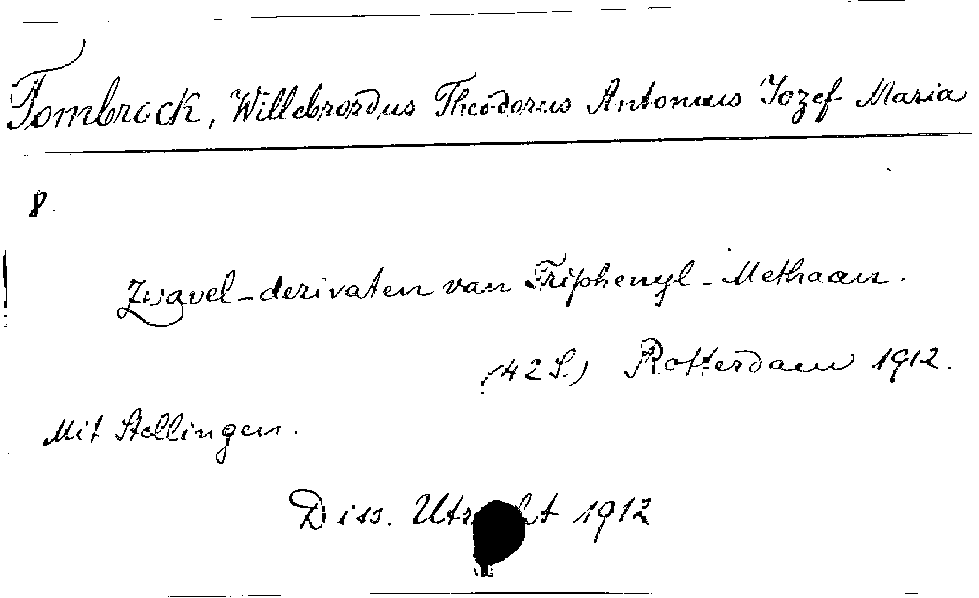 Tombrock, Willebrordus Theodorus Antonius Jozef Maria
8
Zwavel-derivaten van Triphenyl-Methaan.
(42 S.) Rotterdam 1912.
Mit Stellingen.
Diss. Utrecht 1912